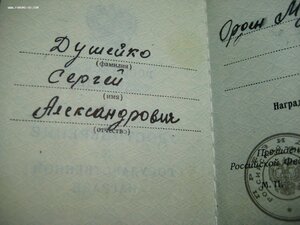 Душейко
(фамилия)
Сергей
(имя)
Александрович
(отчество)
Орден М
Наград
Президент
Российской Феде
М. П.